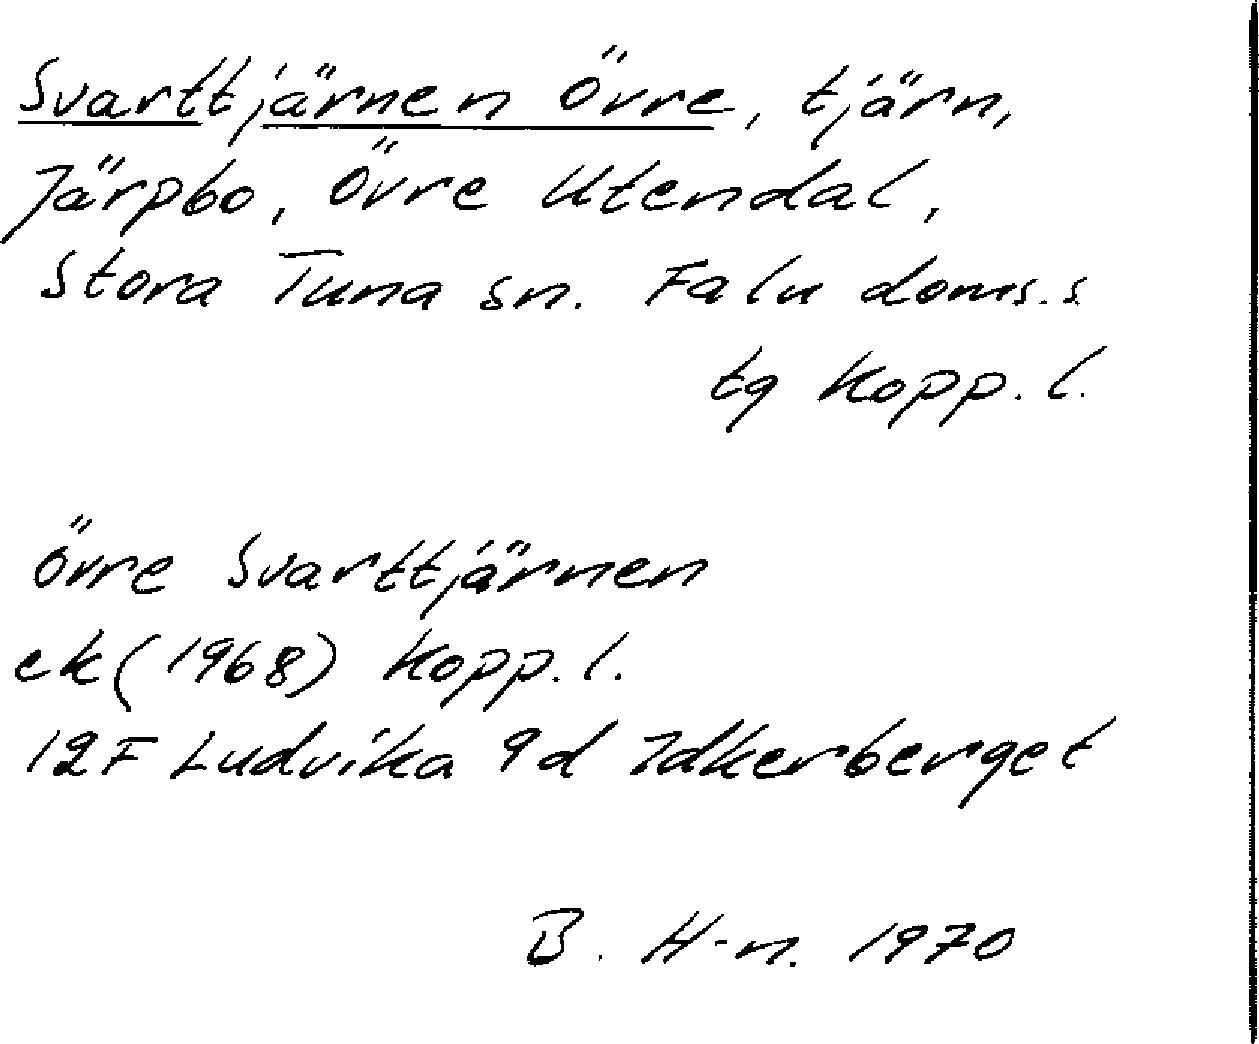 Svarttjärnen Övre, tjärn,
Järpbo, Övre Utendal,
Stora Tuna sn. Falu doms.s
tg Kopp. l.
Övre Svarttjärnen
ek (1968) Kopp. l.
12F Ludvika 9d Idkerberget
B. H-n. 1970